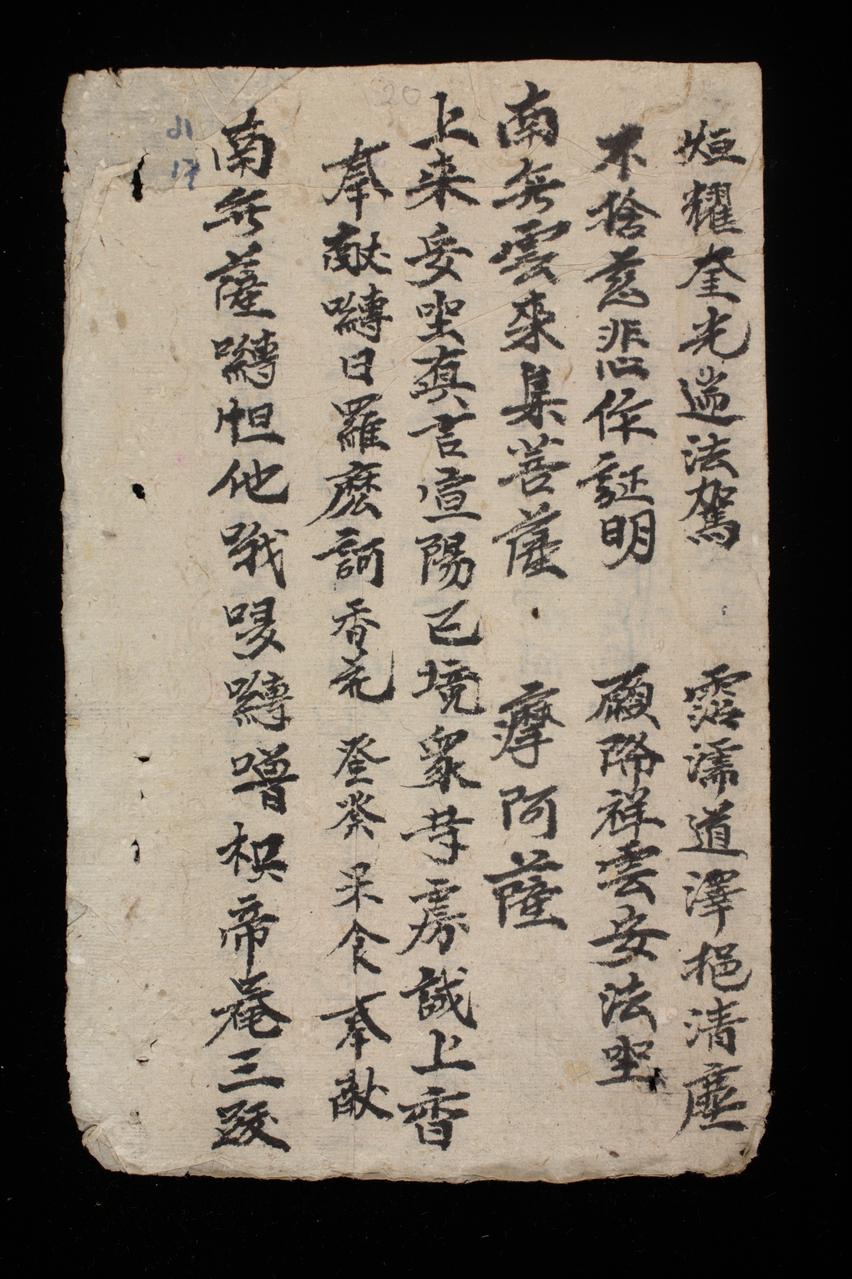 烜耀奎光遄法駕 霑濡道澤挹清塵
不捨慈悲作証明 願降祥雲安法坐
南無雲來集菩薩 摩阿薩
上来安坐真言宣陽已境衆等虏誠上香
奉献嚩日羅麽訶香花登癸呆食奉献
南無薩嚩怛他哦嗖嚩噂枳帝唵三跋
20